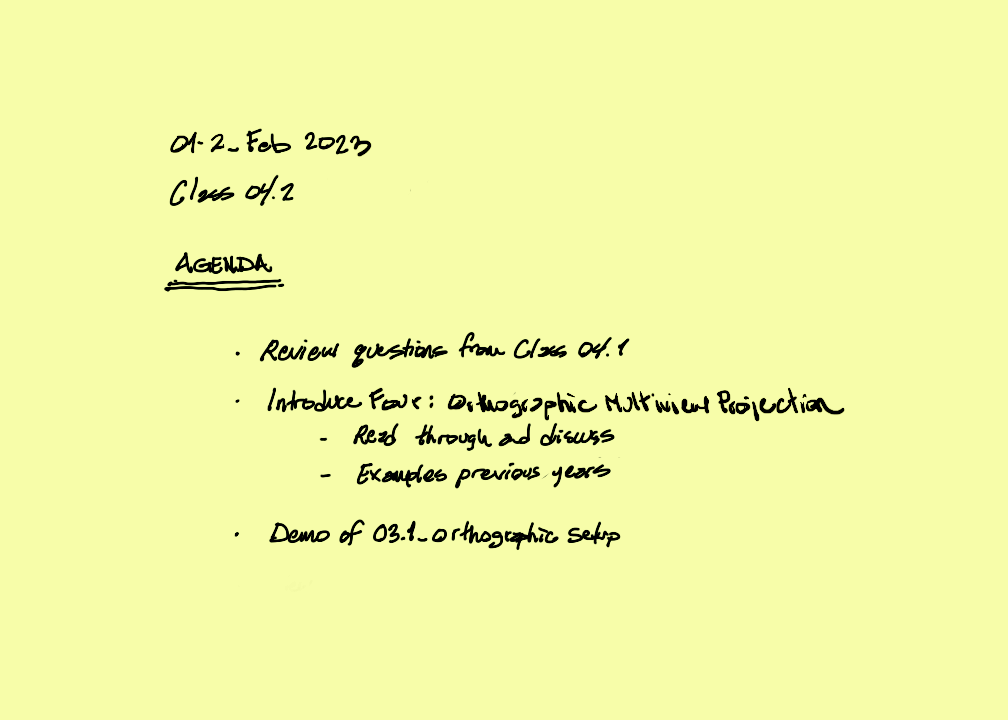 01-2_Feb 2023
Class 04.2
AGENDA
· Review questions from Class 04.1
· Introduce Four: Orthographic Multiview Projection
- Read through and discuss
- Examples previous years
· Demo of 03.1_orthographic setup